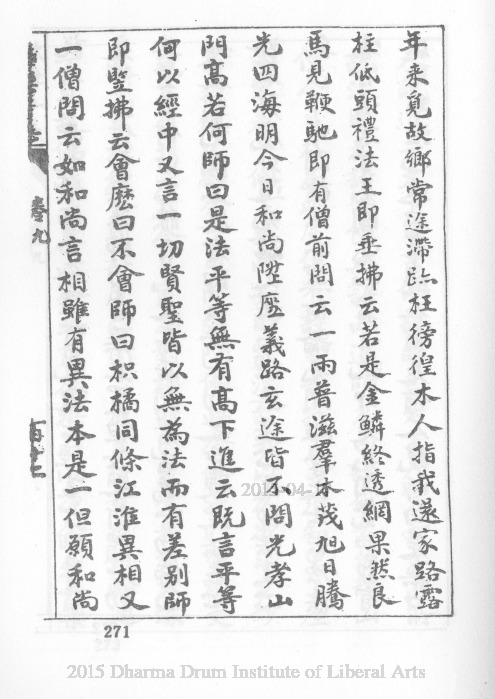 年来覓故鄉常途滯跡枉徬徨木人指我還家路露
柱低頭禮法王即垂拂云若是金鱗終透網果然良
馬見鞭馳即有僧前問云一雨普滋羣木茂旭日騰
光四海明今日和尚陞座義路玄途皆不問光孝山
門高若何師曰是法平等無有高下進云既言平等
何以經中又言一切賢聖皆以無為法而有差別師
即豎拂云會麼曰不會師曰枳橘同條江淮異相又
一僧問云如和尚言相雖有異法本是一但願和尚
卷九
271
2015 Dharma Drum Institute of Liberal Arts